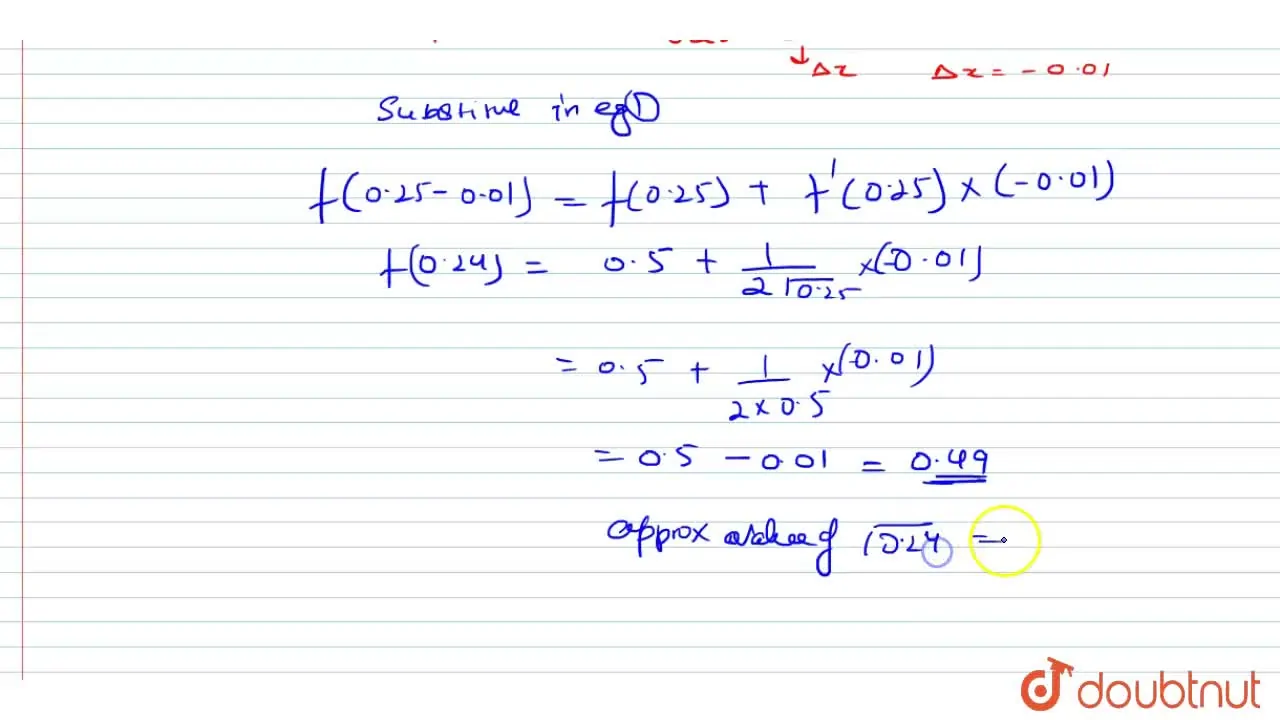 Δx Δx = - 0.01
Substitue in eq①
f(0.25 - 0.01) = f(0.25) + f'(0.25) × (-0.01)
f(0.24) = 0.5 + 1/2√0.25 × (-0.01)
= 0.5 + 1/2×0.5 × (-0.01)
= 0.5 - 0.01 = 0.49
approx value of √0.24 =
doubtnut